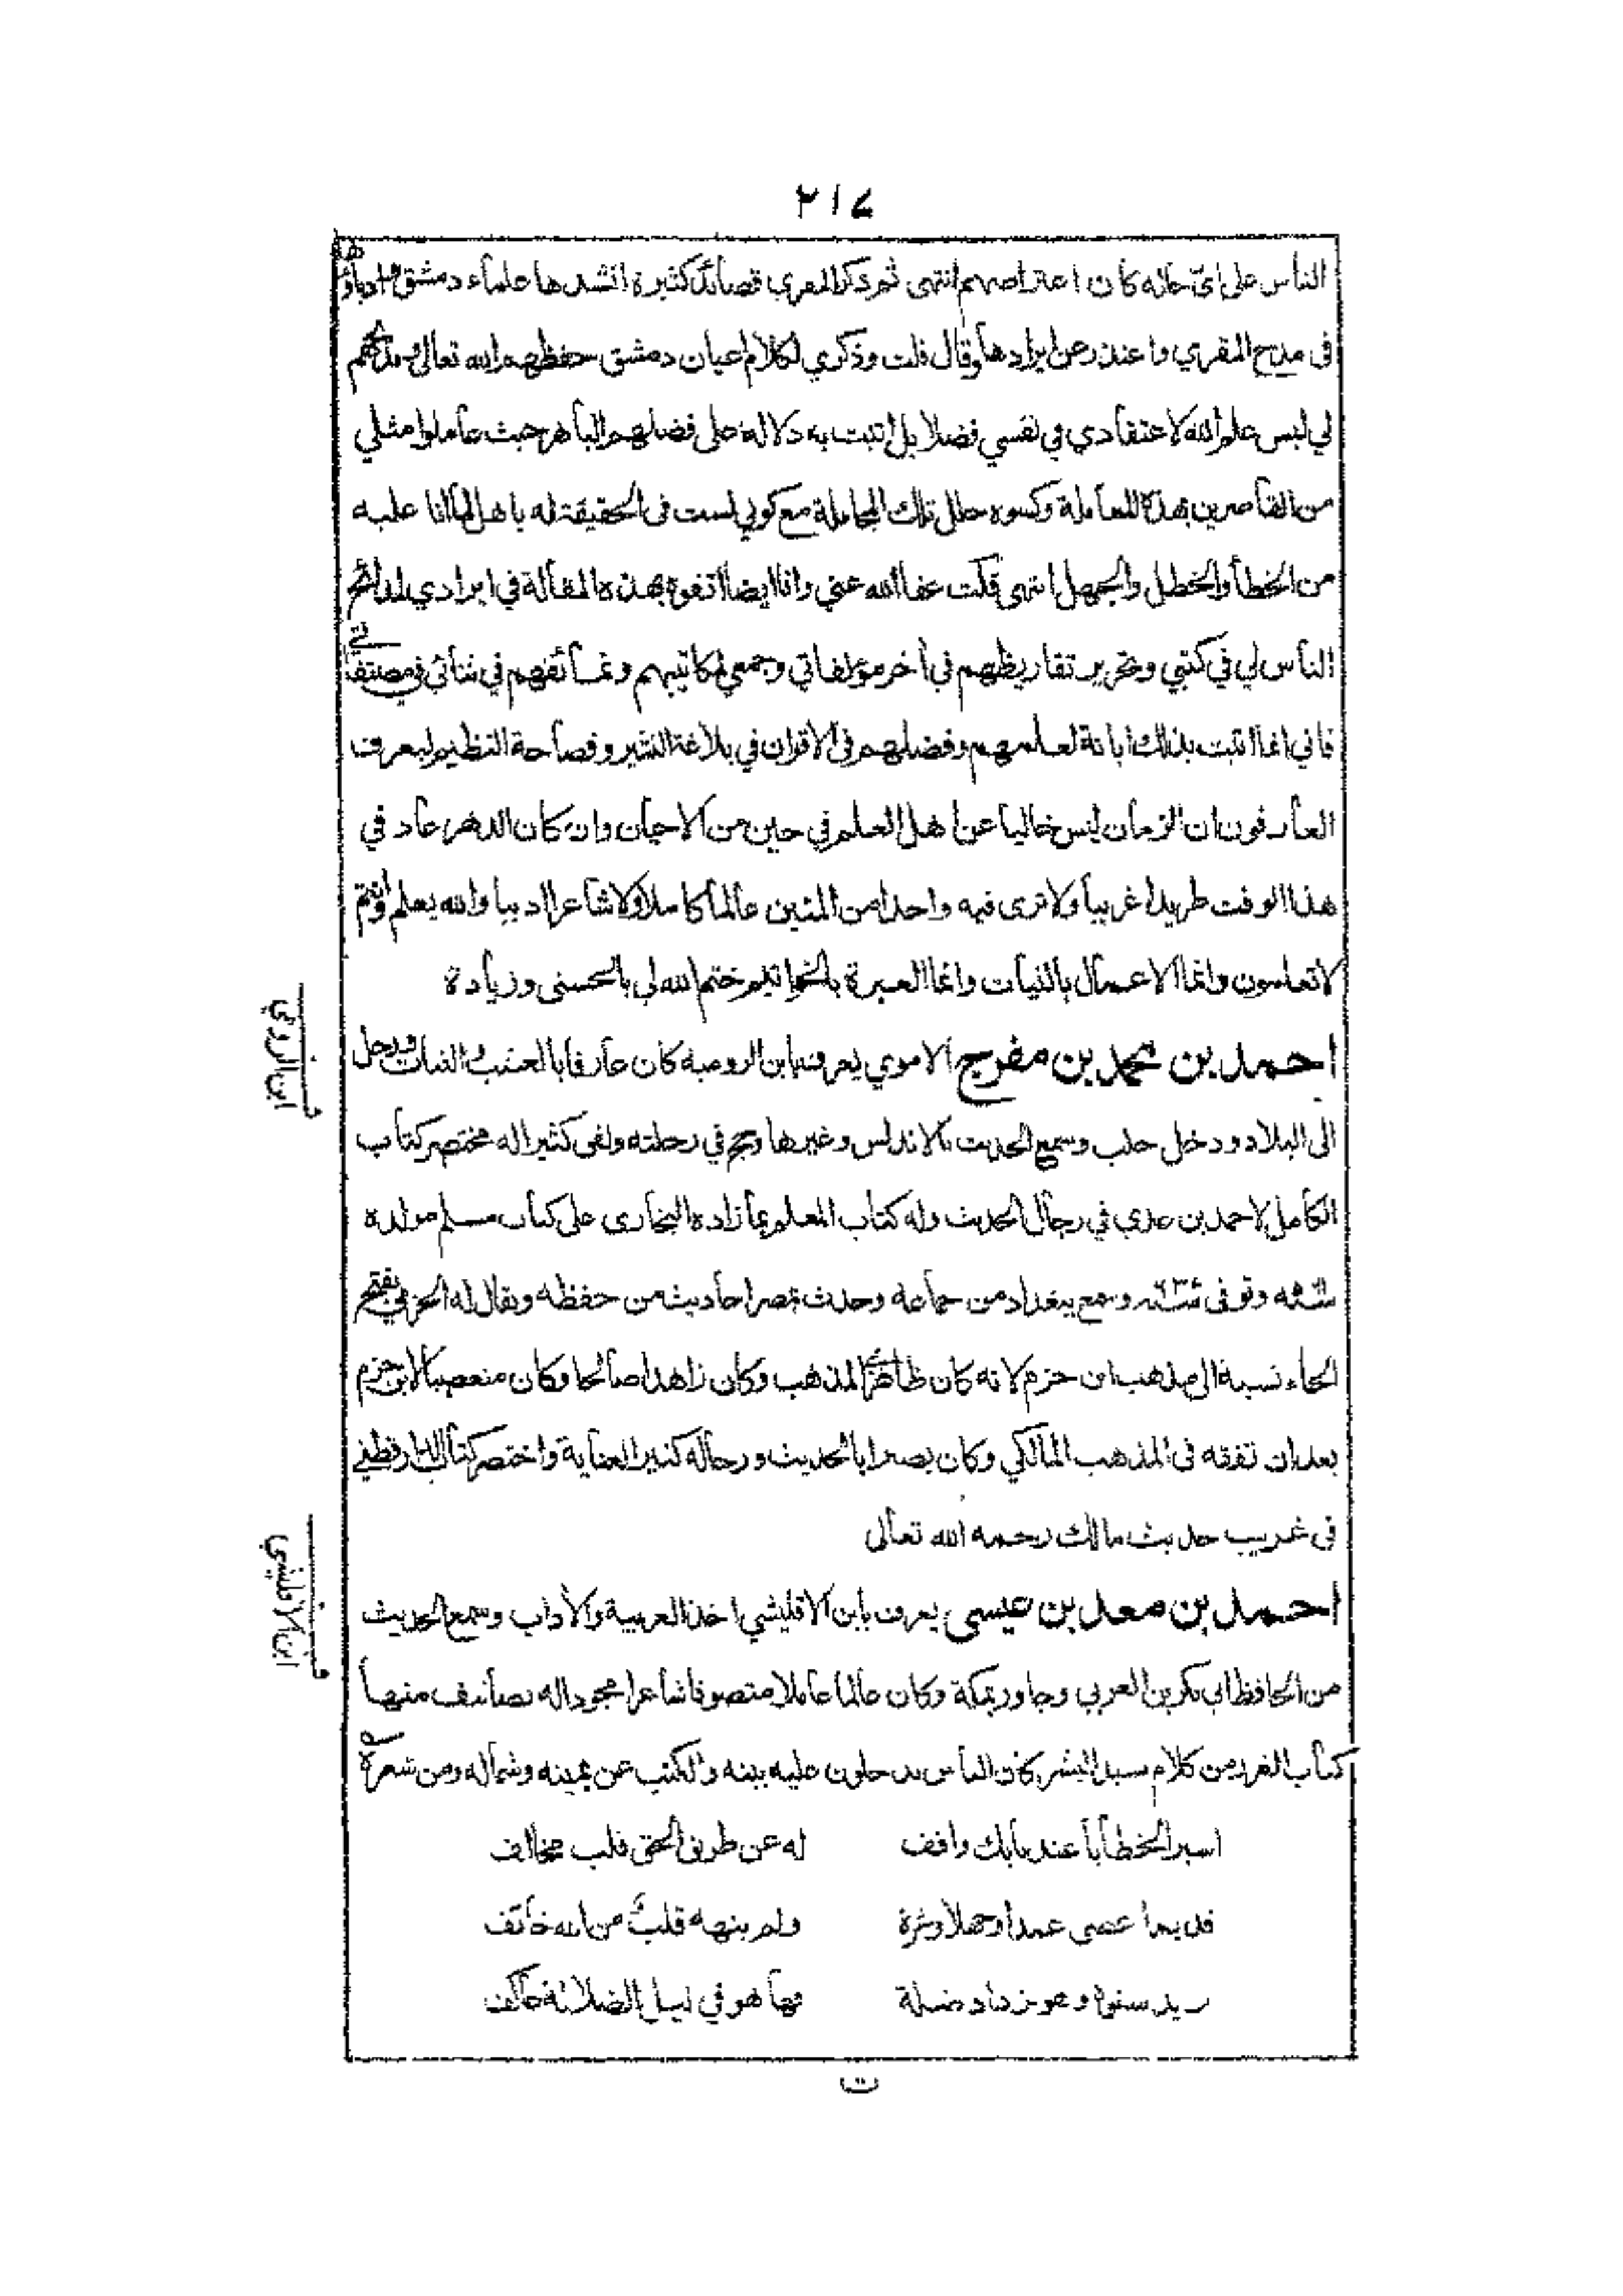 ٢١٧
الناس على اي حاله كان اعتراضهم انتهى ثم ذكر المقري قصائد كثيرة انشدها علماء دمشق وادباؤها
في مديح المقري واعتذر عن ايرادها وقال قلت وذكري لكلام اعيان دمشق حفظهم الله تعالى ومدحهم
لي ليس علم الله لاعتقادي في نفسي فضلا بل اتيت به دلالة على فضلهم الباهر حيث عاملوا مثلي
من القاصرين بهذه المعاملة وكسوه حلل تلك المجاملة مع كوني لست في الحقيقة له باهل لما انا عليه
من الخطأ والخطل والجهل انتهى قلت عفا الله عني وانا ايضا اتفوه بهذه المقالة في ايرادي لمدائح
الناس لي في كتبي وتحرير تقاريظهم في أخر مؤلفاتي وجمعي لمكاتيبهم ونمائقهم في ثنائي في مصنفاتي
فاني انما اتيت بذلك ابانة لعلمهم وفضلهم في الاقران في بلاغة النثير وفصاحة النظيم ليعرف
العارفون ان الزمان ليس خاليا عن اهل العلم في حين من الاحيان وان كان الدهر عاد في
هذا الوقت طريدا غريبا ولا ترى فيه واحدا من المئين عالما كاملا ولا شاعرا اديبا والله يعلم وانتم
لا تعلمون وانما الاعمال بالنيات وانما العبرة بالخواتيم ختم الله لي بالحسنى وزيادة
احمد بن محمد بن مفرج الاموي يعرف بابن الرومية كان عارفا بالعشب والنبات ورحل
ابن الرومي
الى البلاد ودخل حلب وسمع الحديث بالاندلس وغيرها وحج في رحلته ولقى كثيرا له مختصر كتاب
الكامل لاحمد بن عدي في رجال الحديث وله كتاب المعلم بما زاده البخاري على كتاب مسلم مولده
وتوفى وسمع ببغداد من جماعة وحدث بمصر احاديث من حفظه ويقال له الحزمي بفتح
الحاء نسبة الى مذهب ابن حزم لانه كان ظاهري المذهب وكان زاهدا صالحا وكان متعصبا لابن حزم
بعد ان تفقه في المذهب المالكي وكان بصيرا بالحديث ورجاله كثير العناية واختصر كتاب الدارقطني
في غريب حديث مالك رحمه الله تعالى
احمد بن معد بن عيسى يعرف بابن الاقليشي اخذ العربية والأداب وسمع الحديث
ابن الاقليشي
من الحافظ ابي بكر بن العربي وجاور بمكة وكان عالما عاملا متصوفا شاعرا مجودا له تصانيف منها
كتاب الغرر من كلام سيد البشر كان الناس يدخلون عليه بيته والكتب عن يمينه وشماله ومن شعره
اسير الخطايا عند بابك واقف له عن طريق الحق قلب مخالف
قديما عصى عمدا وجهلا وغرة ولم ينهه قلب من الله خائف
يزيد سنوه وهو يزداد ضلة فها هو في ليل الضلالة عاكف
ت